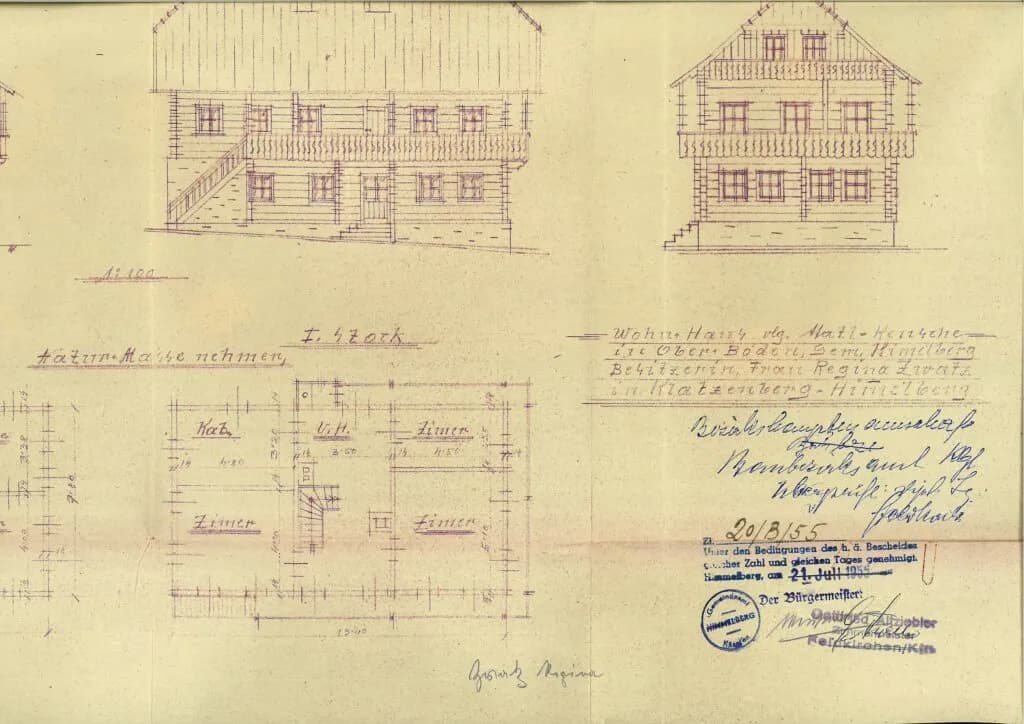 1:100
Natur-Masse nehmen,
I. Stock
Kat.
V.H.
Zimer
4·80
3·50
4·50
Zimer
Zimer
9·00
13·40
Wohn-Haus vlg. Matl-Keusche
in Ober-Boden, Gem. Himelberg
Besitzerin, Frau Regina Zwatz
in Klatzenberg-Himelberg
Bezirkshauptmannschaft
Baubezirksamt Klgf
Überprüft:
Zl. 20/B/55
Unter den Bedingungen des h. ä. Bescheides
gleicher Zahl und gleichen Tages genehmigt.
Himmelberg, am 21. Juli 1955
Der Bürgermeister:
Gemeindeamt
HIMMELBERG
Kärnten
Zimmermeister
Feldkirchen/Ktn
Zwatz Regina